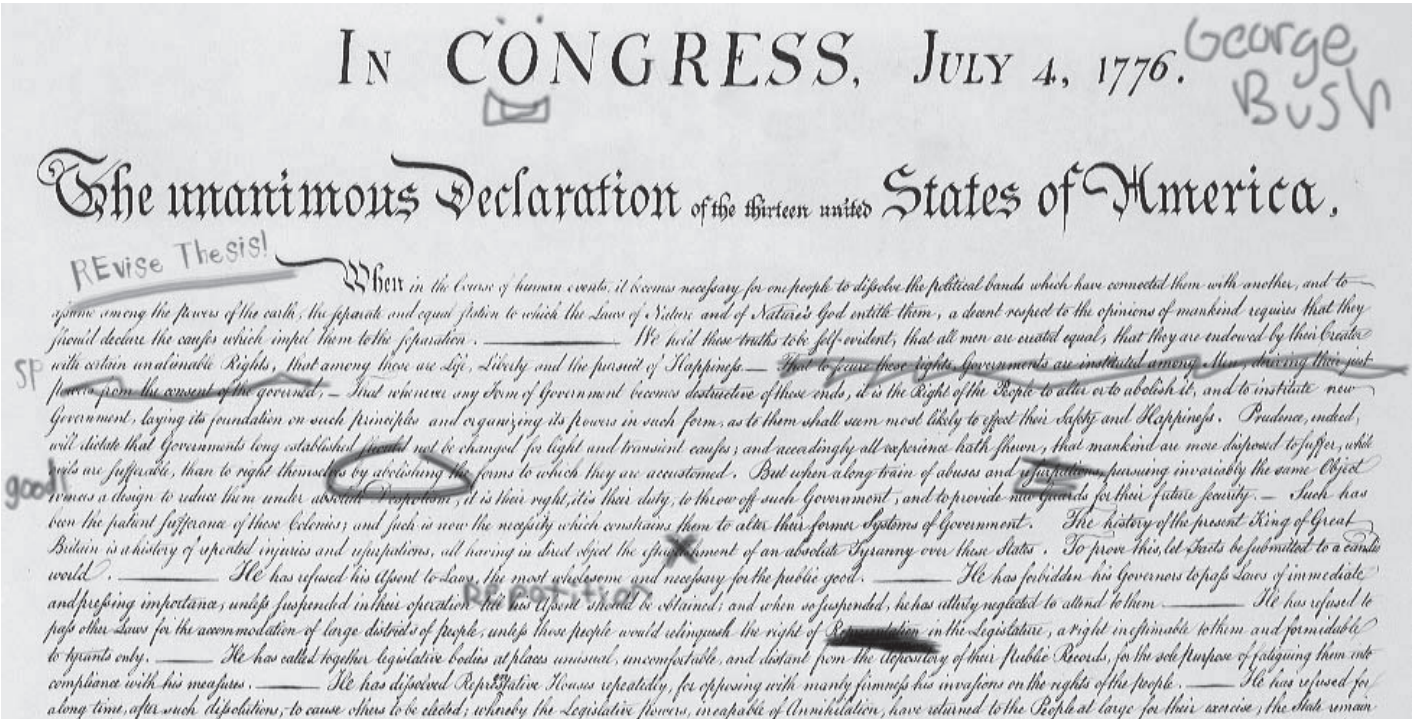 IN CONGRESS, JULY 4, 1776.
George
Bush
The unanimous Declaration of the thirteen united States of America,
REvise Thesis!
When in the Course of human events, it becomes necessary for one people to dissolve the political bands which have connected them with another, and to
assume among the powers of the earth, the separate and equal station to which the Laws of Nature and of Nature's God entitle them, a decent respect to the opinions of mankind requires that they
should declare the causes which impel them to the separation. ———— We hold these truths to be self-evident, that all men are created equal, that they are endowed by their Creator
with certain unalienable Rights, that among these are Life, Liberty and the pursuit of Happiness.— That to secure these rights, Governments are instituted among Men, deriving their just
SP
powers from the consent of the governed, — That whenever any Form of Government becomes destructive of these ends, it is the Right of the People to alter or to abolish it, and to institute new
Government, laying its foundation on such principles and organizing its powers in such form, as to them shall seem most likely to effect their Safety and Happiness. Prudence, indeed,
will dictate that Governments long established should not be changed for light and transient causes; and accordingly all experience hath shewn, that mankind are more disposed to suffer, while
evils are sufferable, than to right themselves by abolishing the forms to which they are accustomed. But when a long train of abuses and usurpations, pursuing invariably the same Object
good!
evinces a design to reduce them under absolute Despotism, it is their right, it is their duty, to throw off such Government, and to provide new Guards for their future security.— Such has
been the patient sufferance of these Colonies; and such is now the necessity which constrains them to alter their former Systems of Government. The history of the present King of Great
Britain is a history of repeated injuries and usurpations, all having in direct object the establishment of an absolute Tyranny over these States. To prove this, let Facts be submitted to a candid
world. ———— He has refused his Assent to Laws, the most wholesome and necessary for the public good. ———— He has forbidden his Governors to pass Laws of immediate
REpatition
and pressing importance, unless suspended in their operation till his Assent should be obtained; and when so suspended, he has utterly neglected to attend to them. ———— He has refused to
pass other Laws for the accommodation of large districts of people, unless those people would relinquish the right of in the Legislature, a right inestimable to them and formidable
to tyrants only. ———— He has called together legislative bodies at places unusual, uncomfortable, and distant from the depository of their Public Records, for the sole purpose of fatiguing them into
compliance with his measures. ———— He has dissolved Representative Houses repeatedly, for opposing with manly firmness his invasions on the rights of the people. ———— He has refused for
a long time, after such dissolutions, to cause others to be elected; whereby the Legislative powers, incapable of Annihilation, have returned to the People at large for their exercise; the State remain